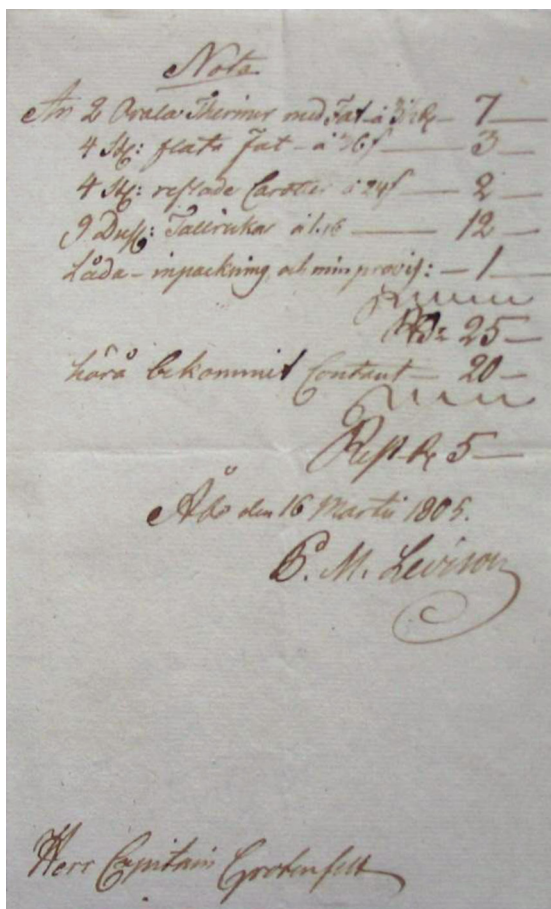 Nota
An 2 Ovala Theriner med Fat à 3½ R – 7 –
4 St: flata Fat – à 36 s – 3 –
4 St: reflade Carotter à 24 s – 2 –
9 Duss: Tallrickar à 1.16 – 12 –
Låda – inpackning och min provis: – 1 –
Rd 25 –
härå bekommit Contant – 20 –
Rest Rd 5 –
Åbo den 16 Martii 1805.
P. M. Levison
Herr Capitain Grotenfelt